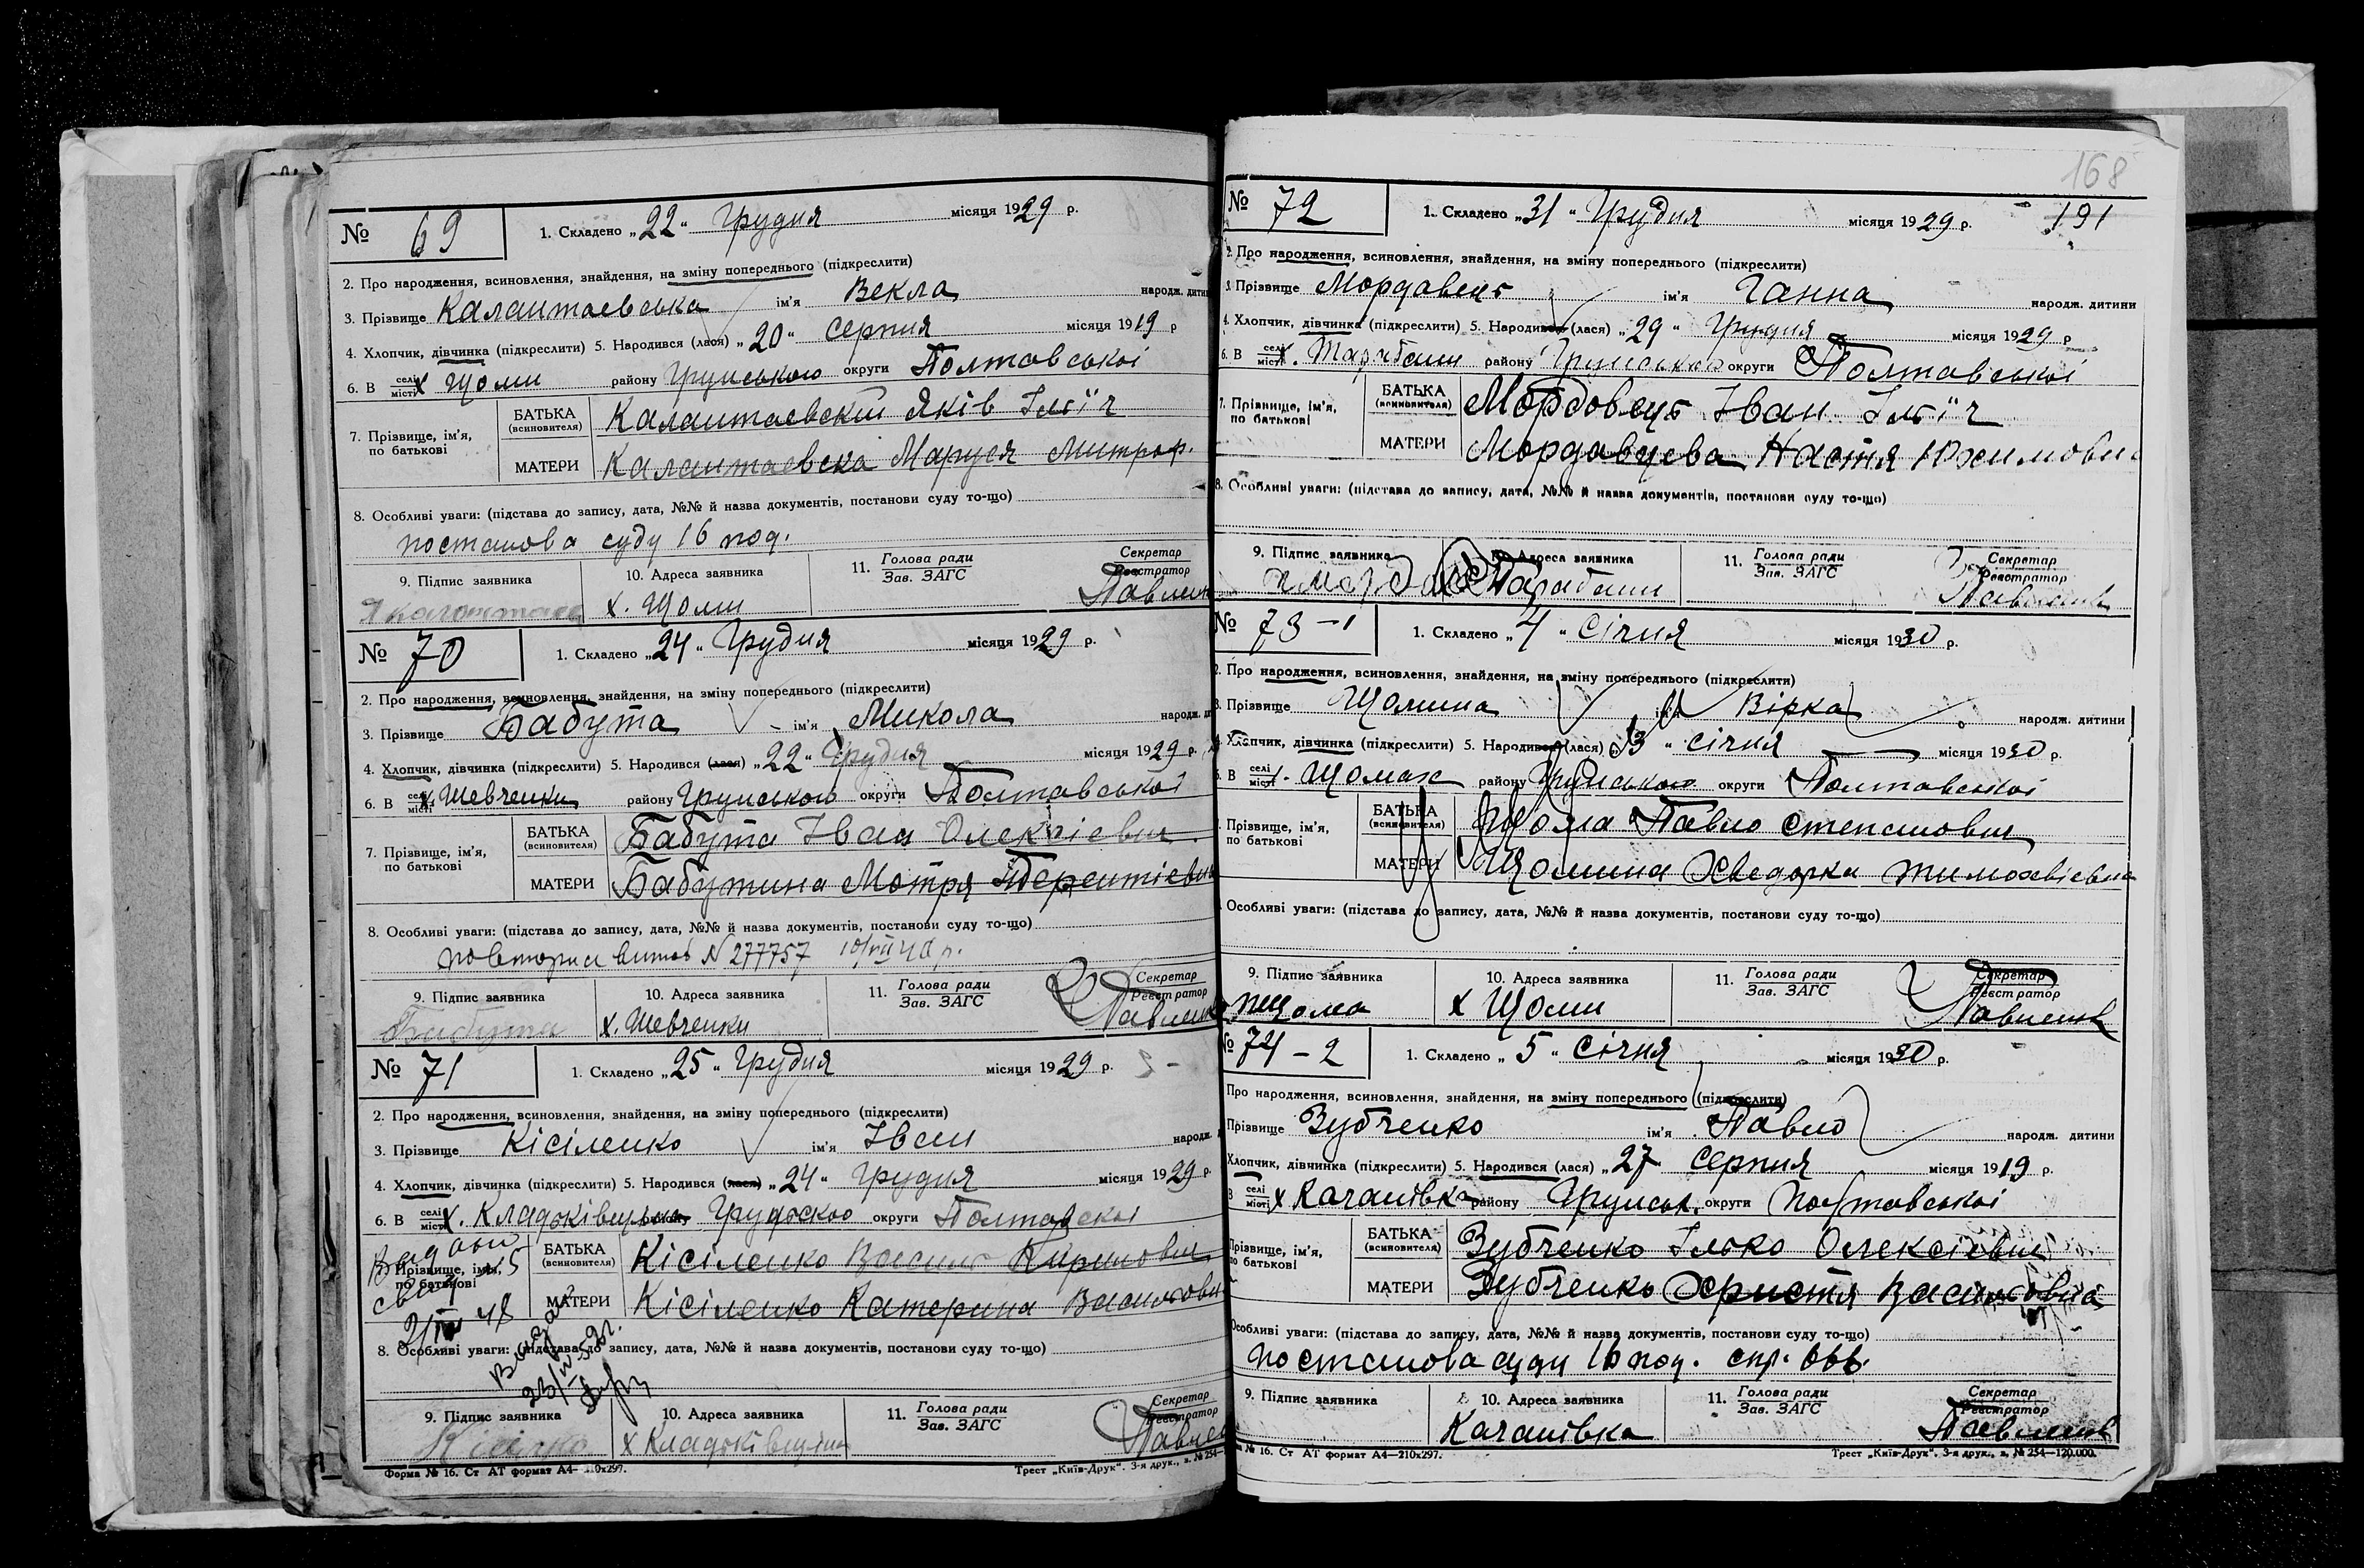 № 69 1. Складено „22“ Грудня місяця 1929 р.
2. Про народження, всиновлення, знайдення, на зміну попереднього (підкреслити)
3. Прізвище Калантаевська ім'я Векла народж. дити
4. Хлопчик, дівчинка (підкреслити) 5. Народився (лася) „20“ серпня місяця 1919 р
6. В селі місті х Щоми району Грунського округи Полтавської
7. Прізвище, ім'я, по батькові
БАТЬКА (всиновителя) Калантаевский Яків Ілліч
МАТЕРИ Калантаевска Маруся Митроф.
8. Особливі уваги: (підстава до запису, дата, №№ й назва документів, постанови суду то-що)
постанова суду 16 под.
9. Підпис заявника 10. Адреса заявника х. Щоми 11. Голова ради Зав. ЗАГС Секретар Реєстратор
№ 70 1. Складено „24“ Грудня місяця 1929 р.
2. Про народження, всиновлення, знайдення, на зміну попереднього (підкреслити)
3. Прізвище Бабута ім'я Микола народж.
4. Хлопчик, дівчинка (підкреслити) 5. Народився (лася) „22“ Грудня місяця 1929 р.
6. В селі місті х Шевченки району Грунського округи Полтавської
7. Прізвище, ім'я, по батькові
БАТЬКА (всиновителя) Бабута Іван Олексієвич
МАТЕРИ Бабутина Мотря Терентієвн
8. Особливі уваги: (підстава до запису, дата, №№ й назва документів, постанови суду то-що)
N 277757 10/VII 40 р.
9. Підпис заявника Бабута 10. Адреса заявника х. Шевченки 11. Голова ради Зав. ЗАГС Секретар Реєстратор
№ 71 1. Складено „25“ Грудня місяця 1929 р.
2. Про народження, всиновлення, знайдення, на зміну попереднього (підкреслити)
3. Прізвище Кісіленко ім'я Іван народж.
4. Хлопчик, дівчинка (підкреслити) 5. Народився (лася) „24“ Грудня місяця 1929 р.
6. В селі місті х. округи Полтавскої
7. Прізвище, ім'я, по батькові
БАТЬКА (всиновителя) Кісіленко Василь Кирилович
МАТЕРИ Кісіленко Катерина Васильовн
8. Особливі уваги: (підстава до запису, дата, №№ й назва документів, постанови суду то-що)
9. Підпис заявника 10. Адреса заявника 11. Голова ради Зав. ЗАГС Секретар Реєстратор
Форма № 16. Ст АТ формат А4—210х297. Трест „Київ-Друк“. 3-я друк., з. № 254
168
191
№ 72 1. Складено „31“ Грудня місяця 1929 р.
2. Про народження, всиновлення, знайдення, на зміну попереднього (підкреслити)
3. Прізвище Мордавець ім'я Ганна народж. дитини
4. Хлопчик, дівчинка (підкреслити) 5. Народився (лася) „29“ Грудня місяця 1929 р
6. В селі місті х. району Грунського округи Полтавської
7. Прізвище, ім'я, по батькові
БАТЬКА (всиновителя) Мордовець Іван Ілліч
МАТЕРИ Мордавцева Настя Юхимовн
8. Особливі уваги: (підстава до запису, дата, №№ й назва документів, постанови суду то-що)
9. Підпис заявника 10. Адреса заявника 11. Голова ради Зав. ЗАГС Секретар Реєстратор
№ 73-1 1. Складено „4“ Січня місяця 1930 р.
2. Про народження, всиновлення, знайдення, на зміну попереднього (підкреслити)
3. Прізвище Щомина ім'я Вірка народж. дитини
4. Хлопчик, дівчинка (підкреслити) 5. Народився (лася) „3“ січня місяця 1930 р.
6. В селі місті Щомах району Грунського округи Полтавської
Прізвище, ім'я, по батькові
БАТЬКА (всиновителя) Щома Павло степанович
МАТЕРИ Щомина Хведорка тимохвієвна
Особливі уваги: (підстава до запису, дата, №№ й назва документів, постанови суду то-що)
9. Підпис заявника Щома 10. Адреса заявника х Щоми 11. Голова ради Зав. ЗАГС Секретар Реєстратор
№ 74-2 1. Складено „5“ Січня місяця 1930 р.
Про народження, всиновлення, знайдення, на зміну попереднього (підкреслити)
Прізвище Зубченко ім'я Павло народж. дитини
Хлопчик, дівчинка (підкреслити) 5. Народився (лася) „27 серпня місяця 1919 р.
В селі місті х Качанівка району Грунськ. округи Полтавської
Прізвище, ім'я, по батькові
БАТЬКА (всиновителя) Зубченко Ілько Олексієвич
МАТЕРИ Зубченко Христя Васильовна
Особливі уваги: (підстава до запису, дата, №№ й назва документів, постанови суду то-що)
постанова суду 16 под. спр. 666.
9. Підпис заявника 10. Адреса заявника Качанівка 11. Голова ради Зав. ЗАГС Секретар Реєстратор
№ 16. Ст АТ формат А4—210х297. Трест „Київ-Друк“. 3-я друк., з. № 254—120.000.